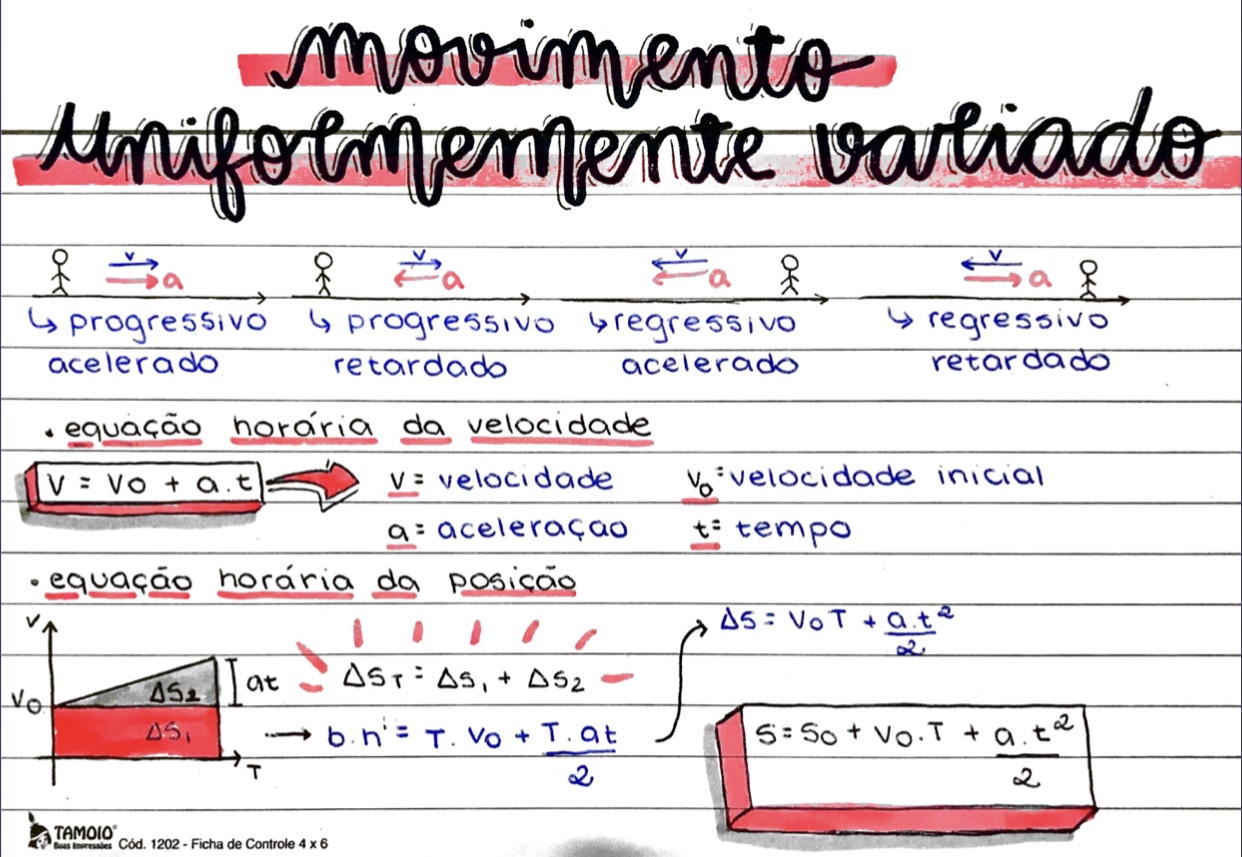 movimento
uniformemente variado
v v v v
a a a a
↳ progressivo ↳ progressivo ↳ regressivo ↳ regressivo
acelerado retardado acelerado retardado
• equação horária da velocidade
V = Vo + a.t V = velocidade Vo = velocidade inicial
a = aceleraçao t = tempo
• equação horária da posição
V
Vo
ΔS₂
ΔS₁
at
T
ΔS_T = ΔS₁ + ΔS₂
→ b.h = T. Vo + T. at / 2
ΔS = VoT + a.t² / 2
S = So + Vo.T + a.t² / 2
TAMOIO®
Boas Impressões Cód. 1202 - Ficha de Controle 4 x 6